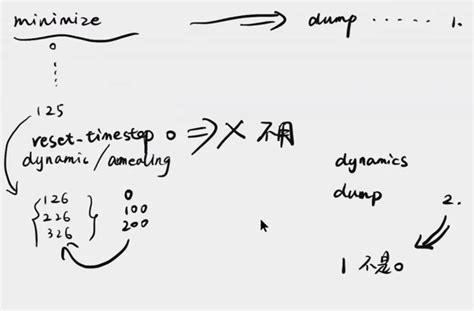 minimize → dump ····· 1.
0
125
reset-timestep 0 ⇒ × 不用
dynamic/annealing
126 0
226 100
326 200
dynamics
dump 2.
1 不是0